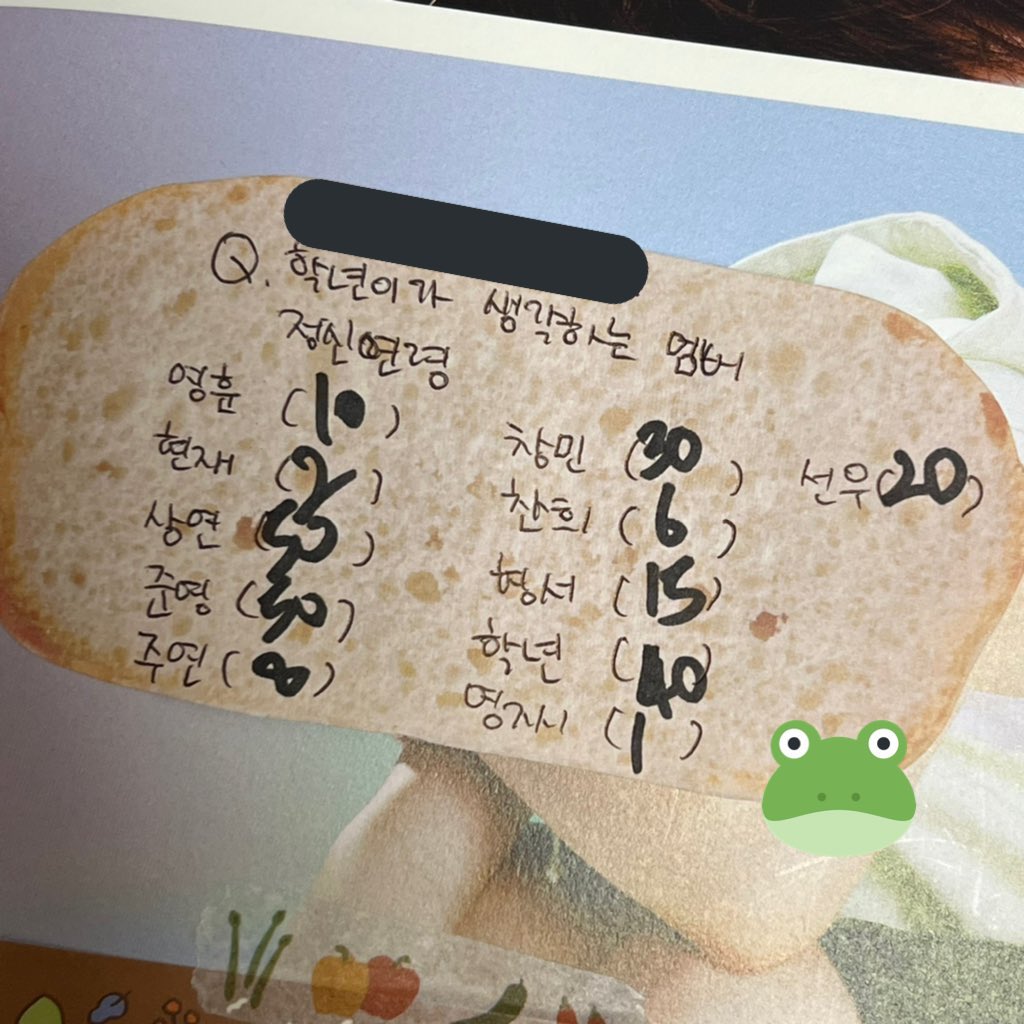 Q. 학년이가 생각하는 멤버
정신연령
영훈 (10)
현재 (2)
상연 (55)
준영 (50)
주연 (8)
창민 (30)
찬희 (6)
형서 (15)
학년 (40)
영지시 (1)
선우 (20)